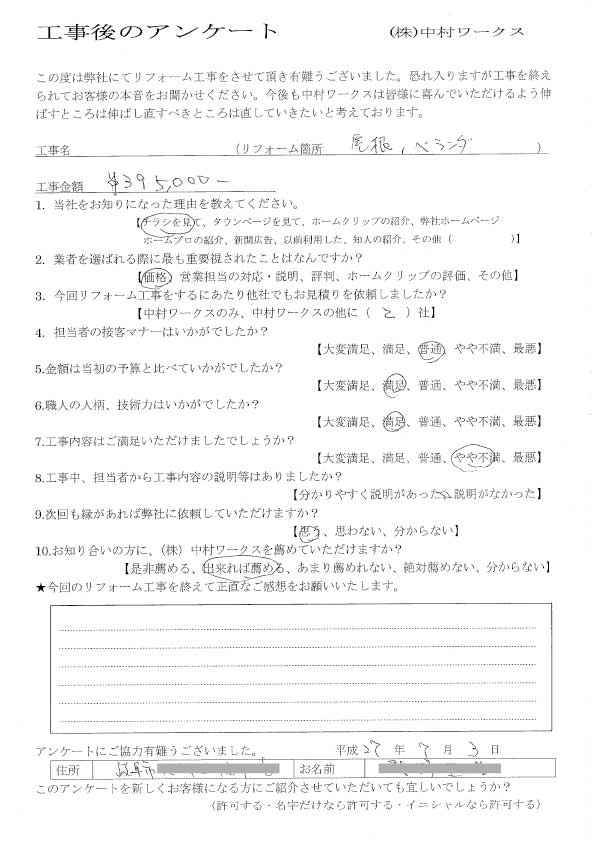 工事後のアンケート (株)中村ワークス
この度は弊社にてリフォーム工事をさせて頂き有難うございました。恐れ入りますが工事を終え
られてお客様の本音をお聞かせください。今後も中村ワークスは皆様に喜んでいただけるよう伸
ばすところは伸ばし直すべきところは直していきたいと考えております。
工事名 (リフォーム箇所 屋根、ベランダ )
工事金額 ¥395,000-
1. 当社をお知りになった理由を教えてください。
【チラシを見て、タウンページを見て、ホームクリップの紹介、弊社ホームページ
ホームプロの紹介、新聞広告、以前利用した、知人の紹介、その他 ( )】
2. 業者を選ばれる際に最も重要視されたことはなんですか?
【価格、営業担当の対応・説明、評判、ホームクリップの評価、その他】
3. 今回リフォーム工事をするにあたり他社でもお見積りを依頼しましたか?
【中村ワークスのみ、中村ワークスの他に ( 2 ) 社】
4. 担当者の接客マナーはいかがでしたか?
【大変満足、満足、普通、やや不満、最悪】
5.金額は当初の予算と比べていかがでしたか?
【大変満足、満足、普通、やや不満、最悪】
6.職人の人柄、技術力はいかがでしたか?
【大変満足、満足、普通、やや不満、最悪】
7.工事内容はご満足いただけましたでしょうか?
【大変満足、満足、普通、やや不満、最悪】
8.工事中、担当者から工事内容の説明等はありましたか?
【分かりやすく説明があった、説明がなかった】
9.次回も縁があれば弊社に依頼していただけますか?
【思う、思わない、分からない】
10.お知り合いの方に、(株) 中村ワークスを薦めていただけますか?
【是非薦める、出来れば薦める、あまり薦めれない、絶対薦めない、分からない】
★今回のリフォーム工事を終えて正直なご感想をお願いいたします。
アンケートにご協力有難うございました。 平成 27 年 7 月 3 日
住所 お名前
このアンケートを新しくお客様になる方にご紹介させていただいても宜しいでしょうか?
(許可する・名字だけなら許可する・イニシャルなら許可する)